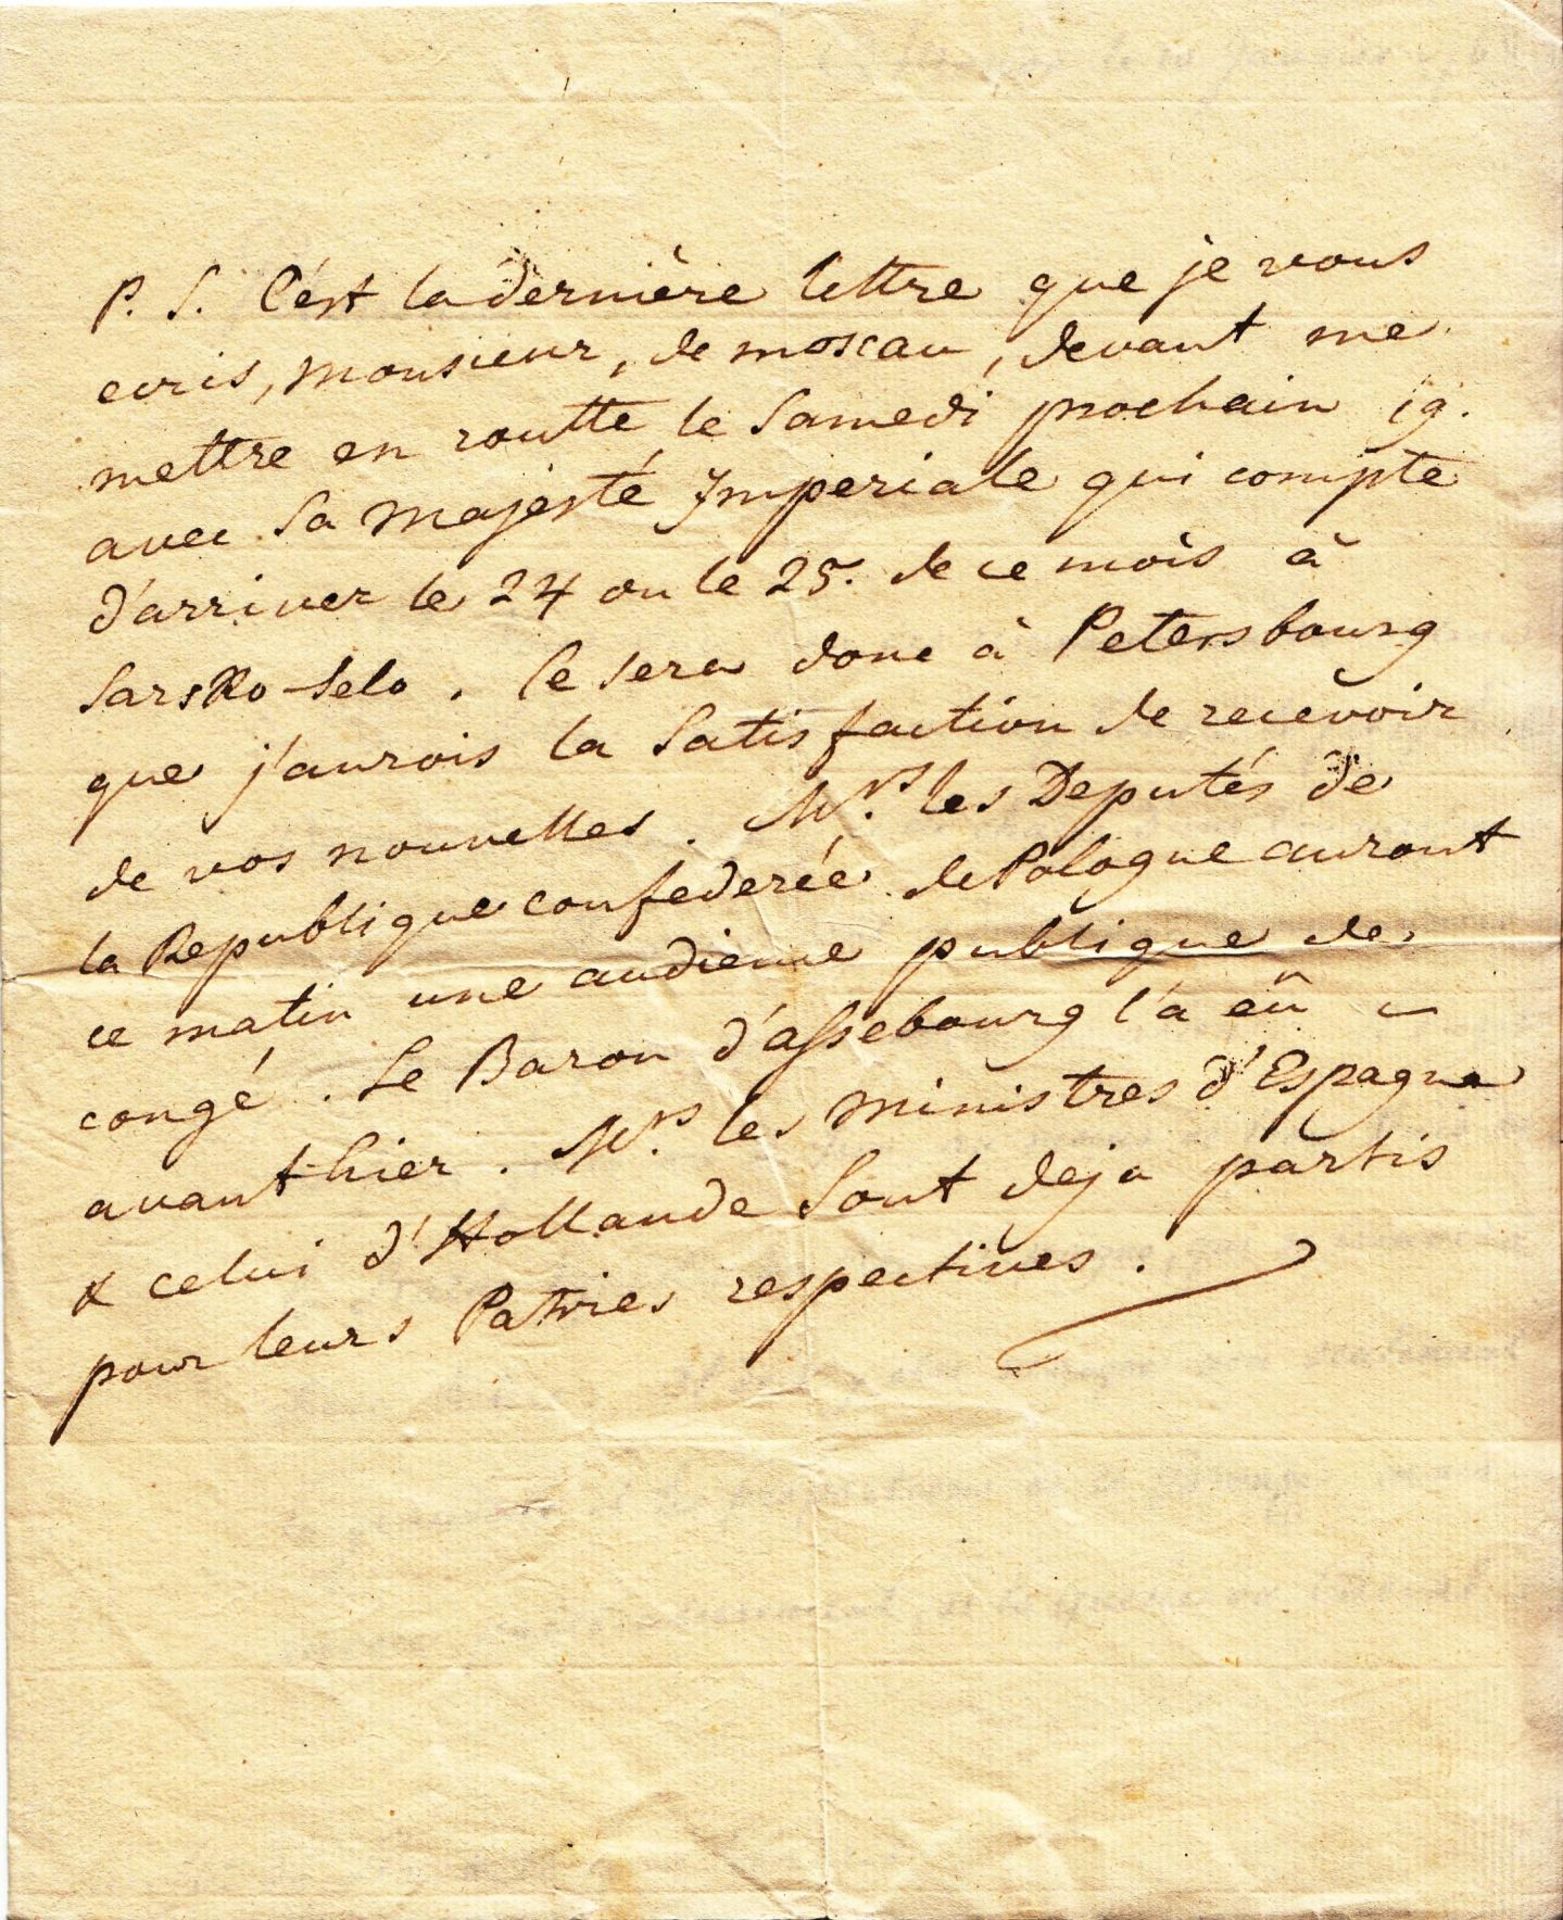 P. S. C'est la dernière lettre que je vous
ecris, monsieur, de moscau, devant me
mettre en routte le Samedi prochain 19.
avec Sa Majesté Imperiale qui compte
d'arriver le 24 ou le 25. de ce mois à
Sarsko-Selo. Ce sera donc à Petersbourg
que j'aurois la Satisfaction de recevoir
de vos nouvelles. Mrs. les Deputés de
la Republique confederée de Pologne auront
ce matin une audience publique de
congé. Le Baron d'assebourg l'a eû
avanthier. Mrs. les ministres d'Espagne
& celui d'Hollande Sont deja partis
pour leurs Patries respectives.